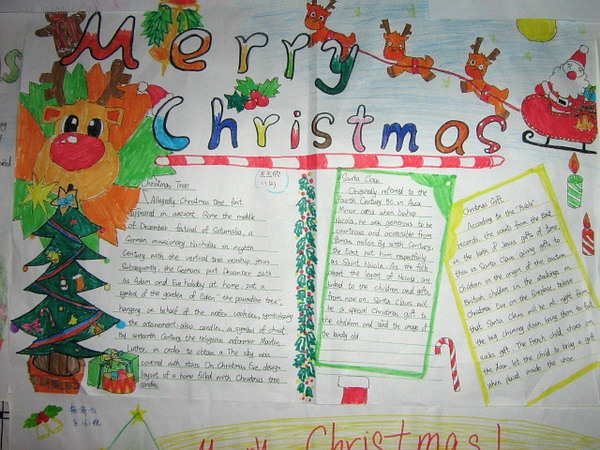 Merry
Christmas
Christmas Tree
Allegedly Christmas tree, first
appeared in ancient Rome the middle
of December festival of Saturnalia, a
German missionary Nicholas in eighth
Century with the vertical tree
Subsequently, the Germans put December 24th
as Adam and Eve holiday at home, put a
symbol of the garden of Eden "the paradise tree"
hanging on behalf of the cookies, symbolizing
the atonement also candles, a symbol of christ
by sixteenth Century, the religious reformer Martin
Luther, in order to obtain a The sky was
covered with stars On Christmas Eve, design
layout of a home filled with Christmas tree
candles
Santa Claus
Originally referred to the
fourth Century in Asia
Minor area when bishop
Nicola, he was generous to be
courteous and accessible from
famous nelion By sixth Century,
the East put him respectfully
as Saint Nicola. As the folk
about the legend of Nicola are
linked to the children and gifts
from now on, Santa Claus will
be a special Christmas gift to
the children and send the image of
the kindly old
Christmas Gift
According to the "Bible"
records, the saints from the East
in the birth of Jesus gift of time,
this is Santa Claus giving gifts to
Children in the origin of the custom
British children in the stockings on
Christmas Eve on the fireplace, believe
that Santa Claus will be at night from
the big chimney down, bring them to the
quiss gift. The French child shoes on
the door, let the child to bring a gift
when placed inside the once
Merry Christmas!